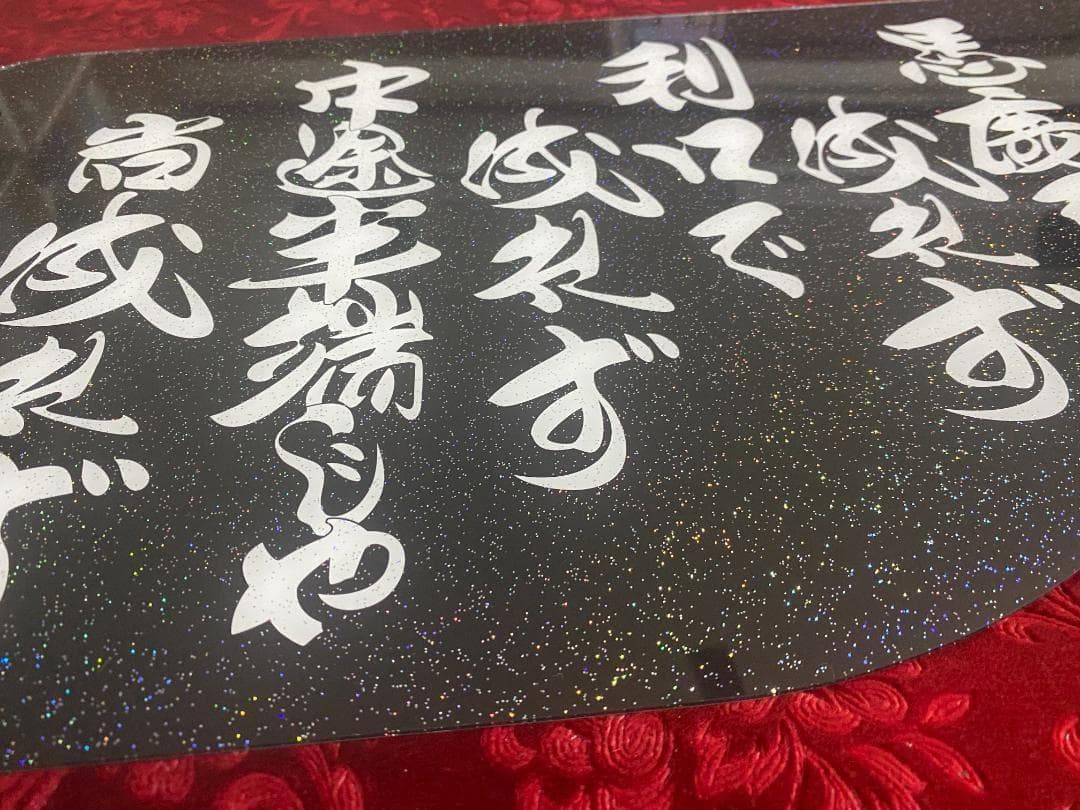 馬鹿で
成れず
利口で
成れず
中途半端じや
尚成れず